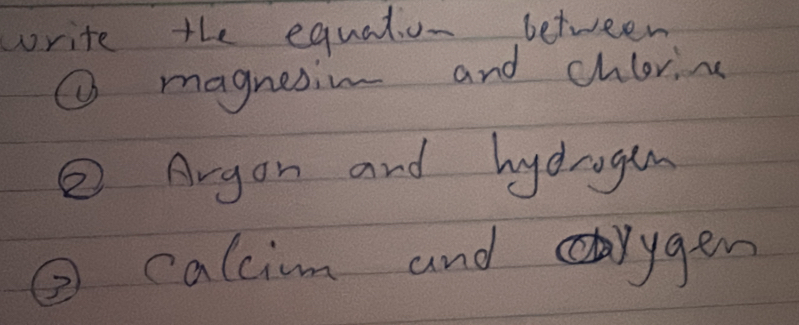 write the equation between
① magnesium and chlorine
② Argon and hydrogen
③ Calcium and oxygen